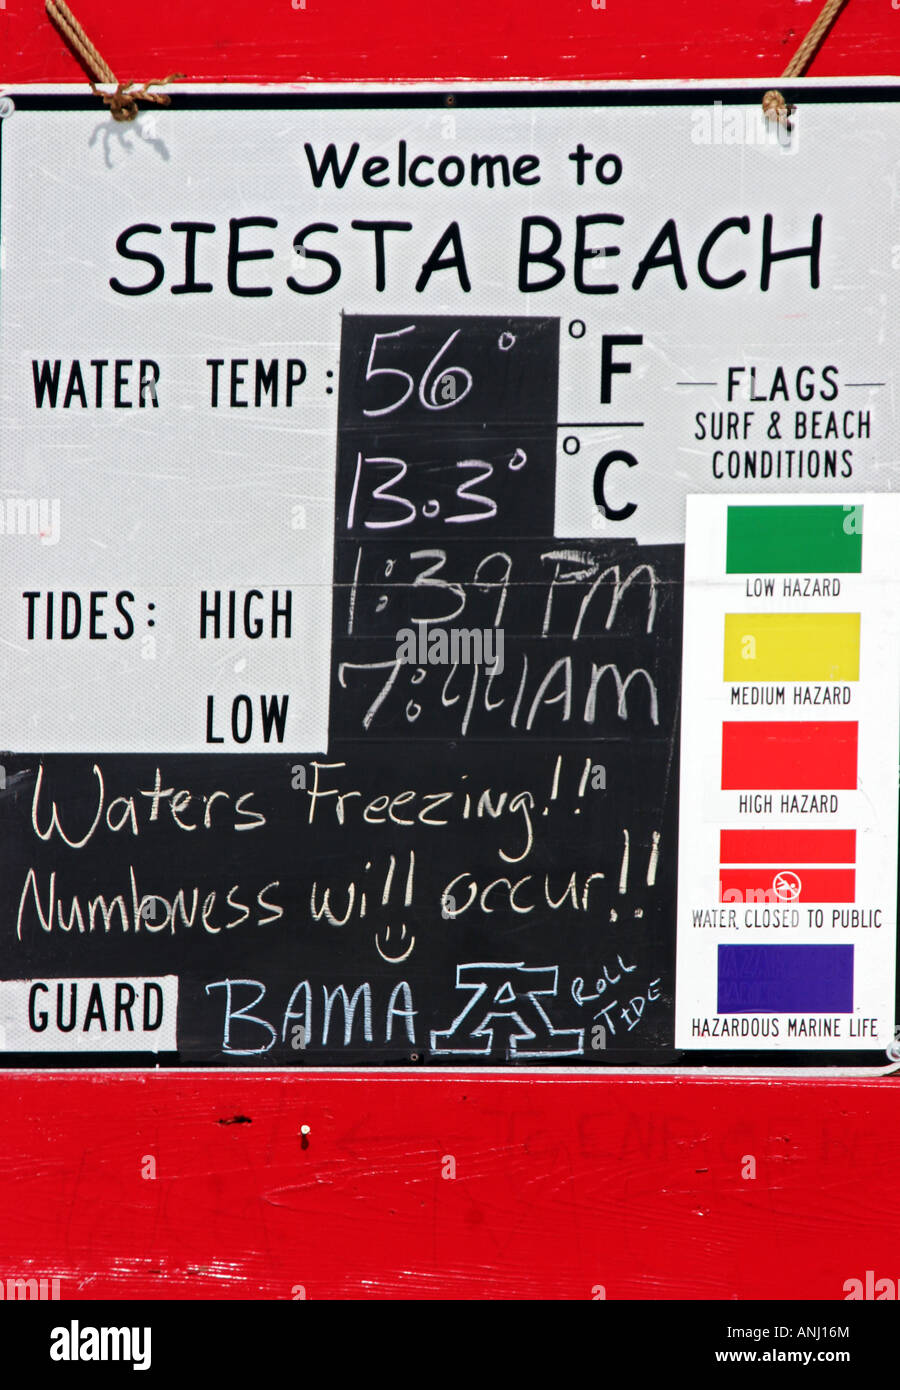 Welcome to
SIESTA BEACH
WATER TEMP: 56° °F
13.3° °C
TIDES: HIGH 1:39 PM
LOW 7:44AM
Waters Freezing!!
Numbness will occur!!
GUARD BAMA A ROLL
TIDE
FLAGS
SURF & BEACH
CONDITIONS
LOW HAZARD
MEDIUM HAZARD
HIGH HAZARD
WATER CLOSED TO PUBLIC
HAZARDOUS MARINE LIFE
alamy
Image ID: ANJ16M
www.alamy.com